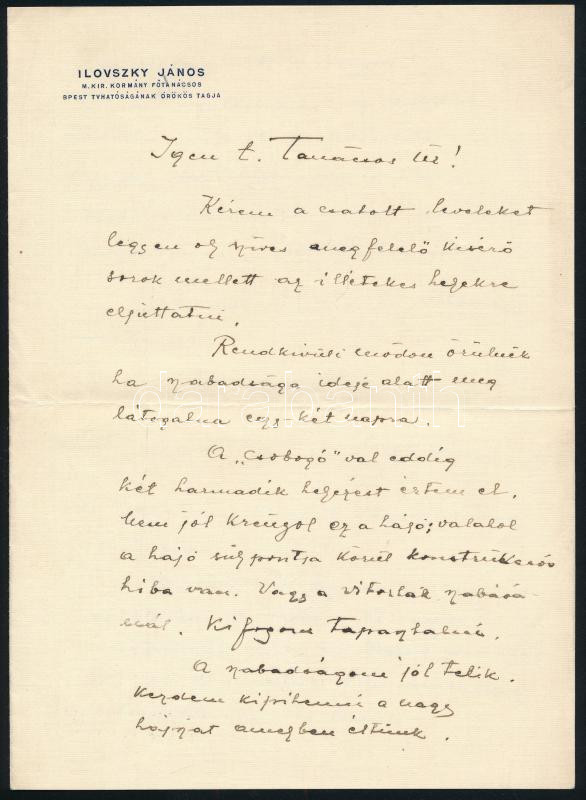 ILOVSZKY JÁNOS
M. KIR. KORMÁNY FŐTANÁCSOS
BPEST TVHATÓSÁGÁNAK ÖRÖKÖS TAGJA
Igen t. Tanácsos Úr!
Kérem a csatolt leveleket
legyen oly szives megfelelő kisérő
sorok mellett az illétekes helyekre
eljuttatni.
Rendkivüli módon örülnék
ha szabadsága ideje alatt meg
látogatna egy két napra.
A „csobogó" val eddig
két harmadik helyezést értem el.
Nem jól kreügol ez a hajó; valahol
a hajó súlypontja körül konstrukciós
hiba van. Vagy a vitorlák szabásá-
nál. Ki fogom tapasztalni.
A szabadságom jól telik.
Kezdem kipihenni a nagy
hajszát amelyben éltünk.
darabanth